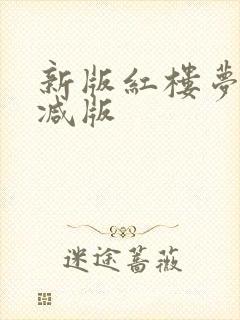 新版紅樓夢
减版
迷途蔷薇